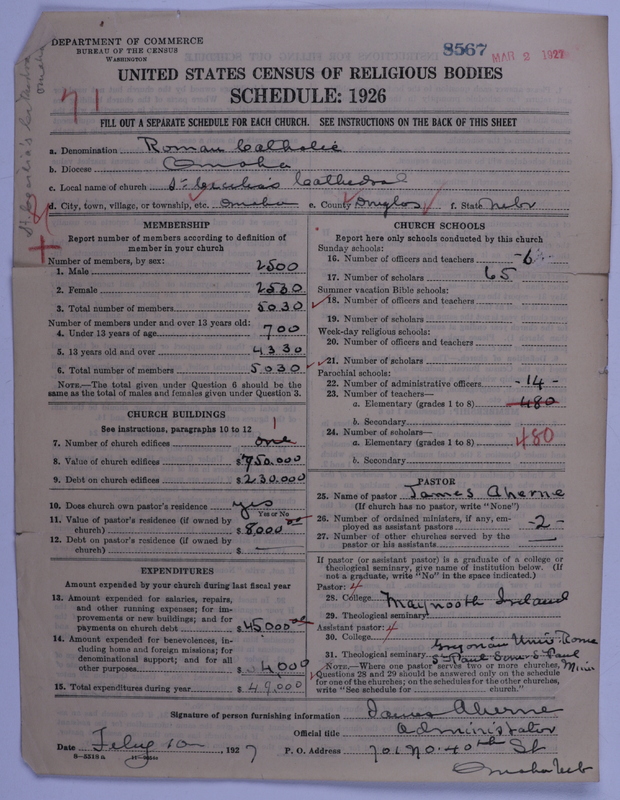 DEPARTMENT OF COMMERCE
BUREAU OF THE CENSUS
WASHINGTON
8567
MAR 2 1927
UNITED STATES CENSUS OF RELIGIOUS BODIES
SCHEDULE: 1926
71
FILL OUT A SEPARATE SCHEDULE FOR EACH CHURCH. SEE INSTRUCTIONS ON THE BACK OF THIS SHEET
a. Denomination Roman Catholic
b. Diocese Omaha
c. Local name of church St Cecilia's Cathedral
d. City, town, village, or township, etc. Omaha e. County Douglas f. State Nebr
St. Cecilia's
Omaha
MEMBERSHIP
Report number of members according to definition of
member in your church
Number of members, by sex:
1. Male 2500
2. Female 2530
3. Total number of members 5030
Number of members under and over 13 years old:
4. Under 13 years of age 700
5. 13 years old and over 4330
6. Total number of members 5030
NOTE.—The total given under Question 6 should be the
same as the total of males and females given under Question 3.
CHURCH BUILDINGS
See instructions, paragraphs 10 to 12
7. Number of church edifices one 1
8. Value of church edifices $750.000
9. Debt on church edifices $230.000
10. Does church own pastor's residence yes
Yes or No
11. Value of pastor's residence (if owned by
church) $8,000 00
12. Debt on pastor's residence (if owned by
church) $ —
EXPENDITURES
Amount expended by your church during last fiscal year
13. Amount expended for salaries, repairs,
and other running expenses; for im-
provements or new buildings; and for
payments on church debt $45000 00
14. Amount expended for benevolences, in-
cluding home and foreign missions; for
denominational support; and for all
other purposes $4000
15. Total expenditures during year $49,000
CHURCH SCHOOLS
Report here only schools conducted by this church
Sunday schools:
16. Number of officers and teachers 6
17. Number of scholars 65
Summer vacation Bible schools:
18. Number of officers and teachers
19. Number of scholars
Week-day religious schools:
20. Number of officers and teachers
21. Number of scholars
Parochial schools:
22. Number of administrative officers -14-
23. Number of teachers—
a. Elementary (grades 1 to 8) 480
b. Secondary
24. Number of scholars—
a. Elementary (grades 1 to 8) 480
b. Secondary
PASTOR
25. Name of pastor James Aherne
(If church has no pastor, write "None")
26. Number of ordained ministers, if any, em-
ployed as assistant pastors -2-
27. Number of other churches served by the
pastor or his assistants —
If pastor (or assistant pastor) is a graduate of a college or
theological seminary, give name of institution below. (If
not a graduate, write "No" in the space indicated.)
Pastor: 4
28. College Maynooth Ireland
29. Theological seminary
Assistant pastor: 4
30. College Univ. Rome
31. Theological seminary St Paul Sem. St Paul
Minn
NOTE.—Where one pastor serves two or more churches,
Questions 28 and 29 should be answered only on the schedule
for one of the churches; on the schedules for the other churches,
write "See schedule for church."
Signature of person furnishing information James Aherne
Official title Administrator
Date Feby 10 1927 P. O. Address 701 No. 40th St
8—5518 a
Omaha Neb